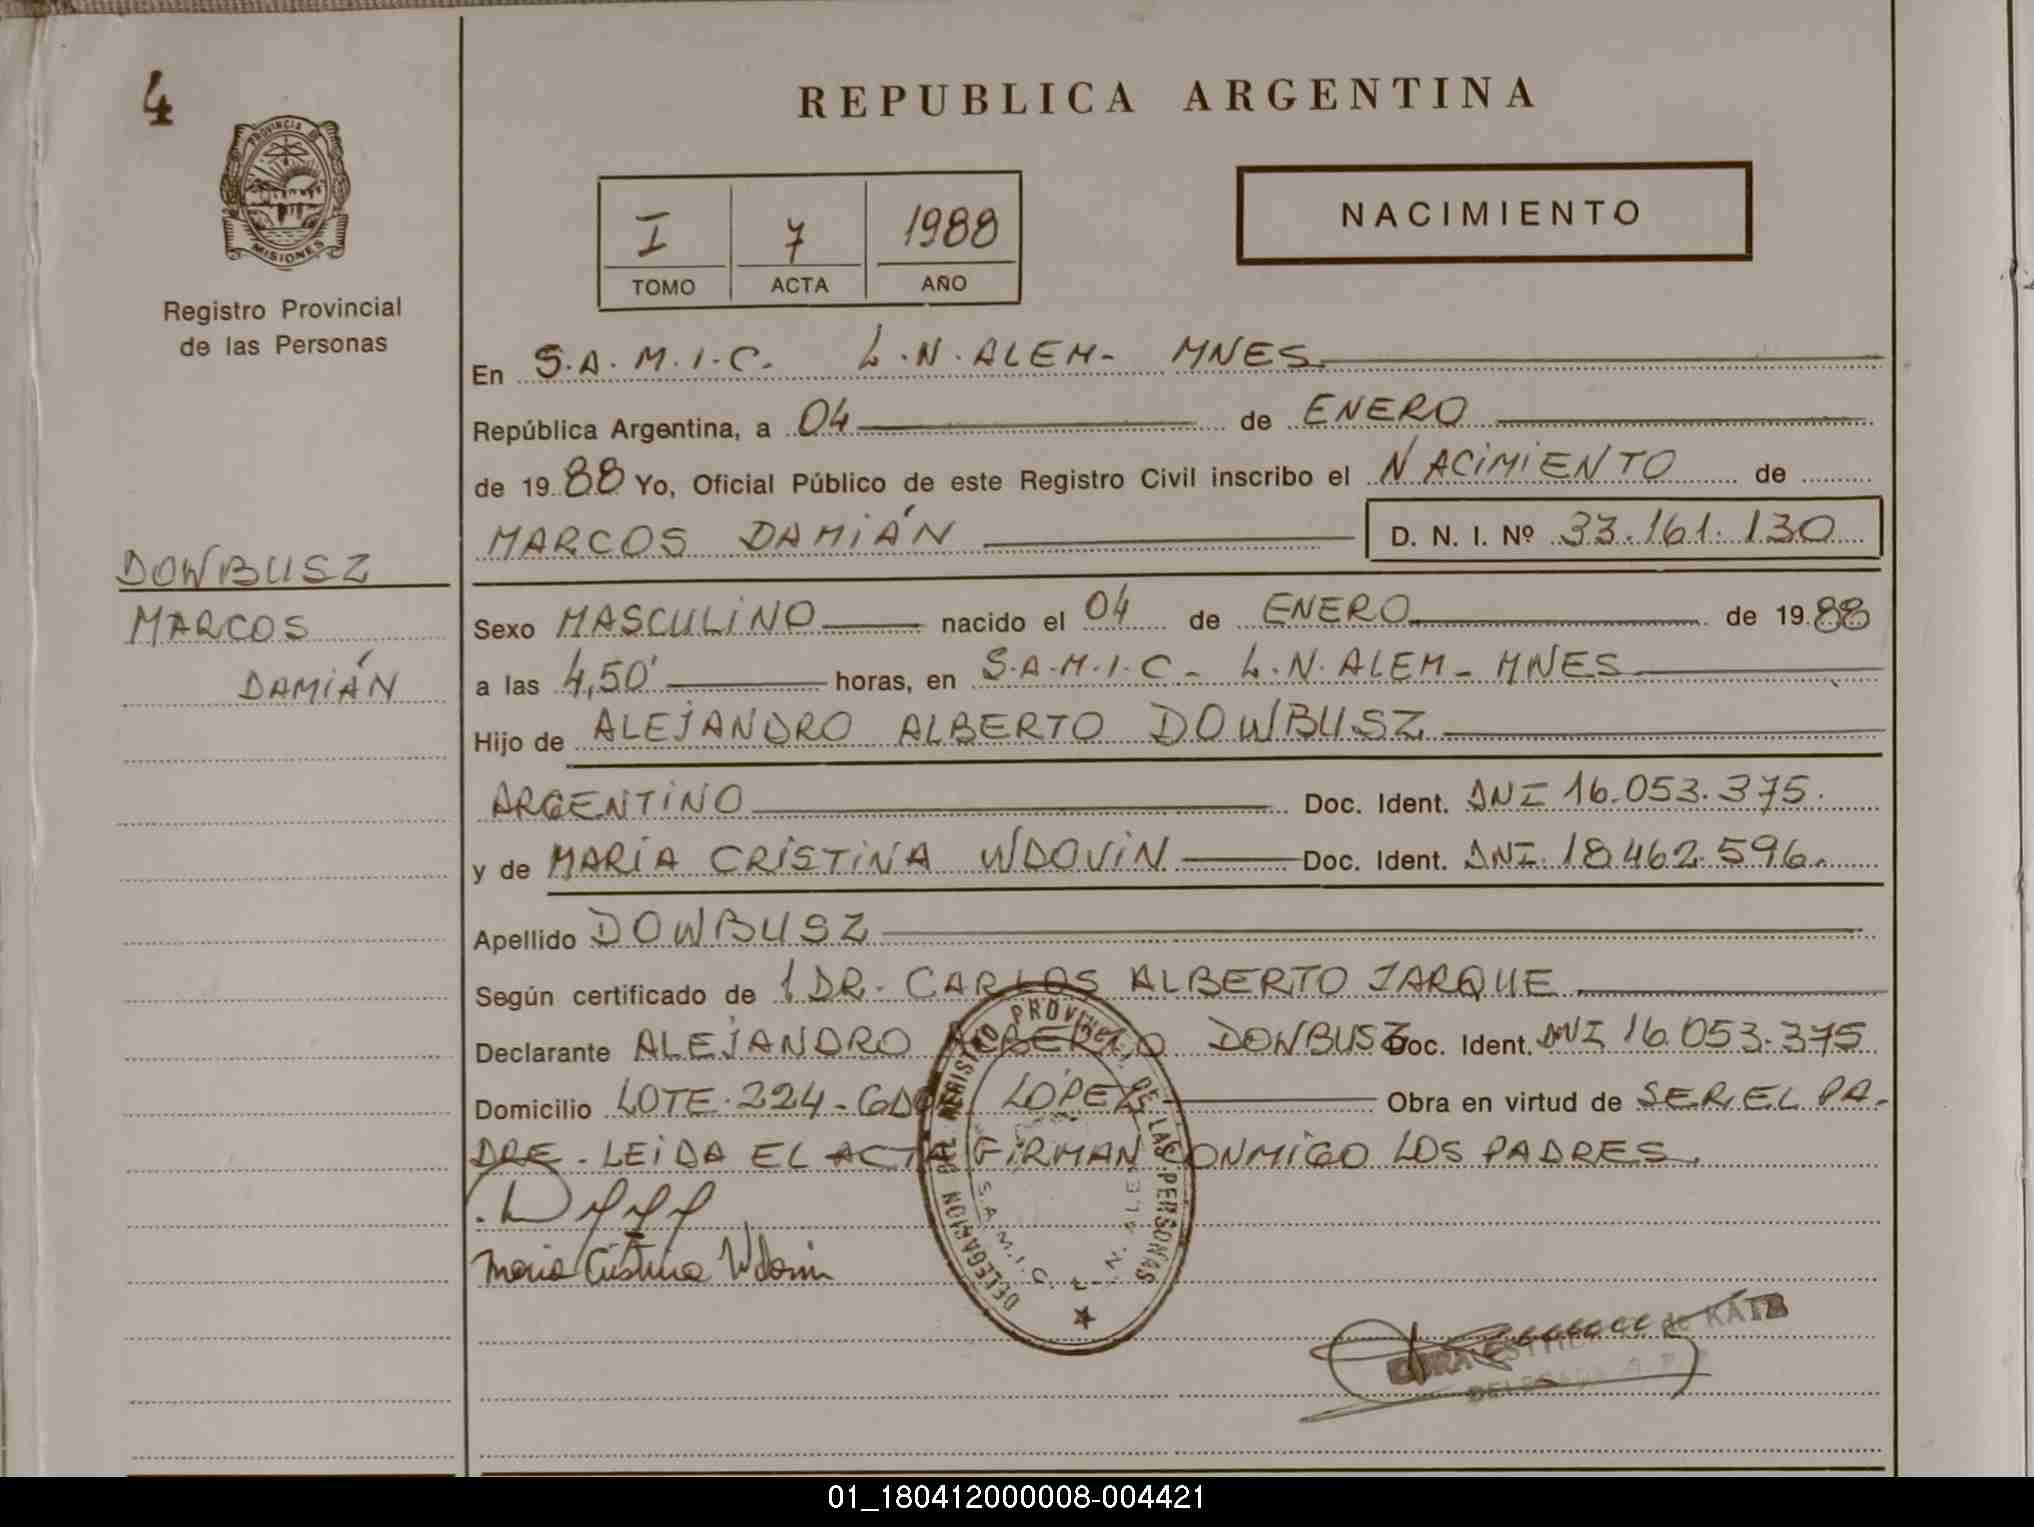 4
PROVINCIA DE
MISIONES
Registro Provincial
de las Personas
DOWBUSZ
MARCOS
DAMIÁN
REPUBLICA ARGENTINA
I 7 1988
TOMO ACTA AÑO
NACIMIENTO
En S.A.M.I.C. L.N. ALEM- MNES
República Argentina, a 04 de ENERO
de 19 88 Yo, Oficial Público de este Registro Civil inscribo el NACIMIENTO de
MARCOS DAMIÁN D. N. I. Nº 33.161.130
Sexo MASCULINO nacido el 04 de ENERO de 19 88
a las 4,50' horas, en S.A.M.I.C- L.N. ALEM- MNES
Hijo de ALEJANDRO ALBERTO DOWBUSZ
ARGENTINO Doc. Ident. DNI 16.053.375.
y de MARÍA CRISTINA WDOVIN Doc. Ident. DNI. 18.462.596.
Apellido DOWBUSZ
Según certificado de 1 DR. CARLOS ALBERTO JARQUE
Declarante ALEJANDRO ALBERTO DOWBUSZ Doc. Ident. DNI 16.053.375
Domicilio LOTE 224- GDOR LÓPEZ Obra en virtud de SER EL PA-
DRE. LEIDA EL ACTA FIRMAN CONMIGO LOS PADRES.
Maria Cristina Wdovin
DELEGACION DEL REGISTRO PROVINCIAL DE LAS PERSONAS
S.A.M.I.C. L. N. ALEM
de KATZ
01_180412000008-004421